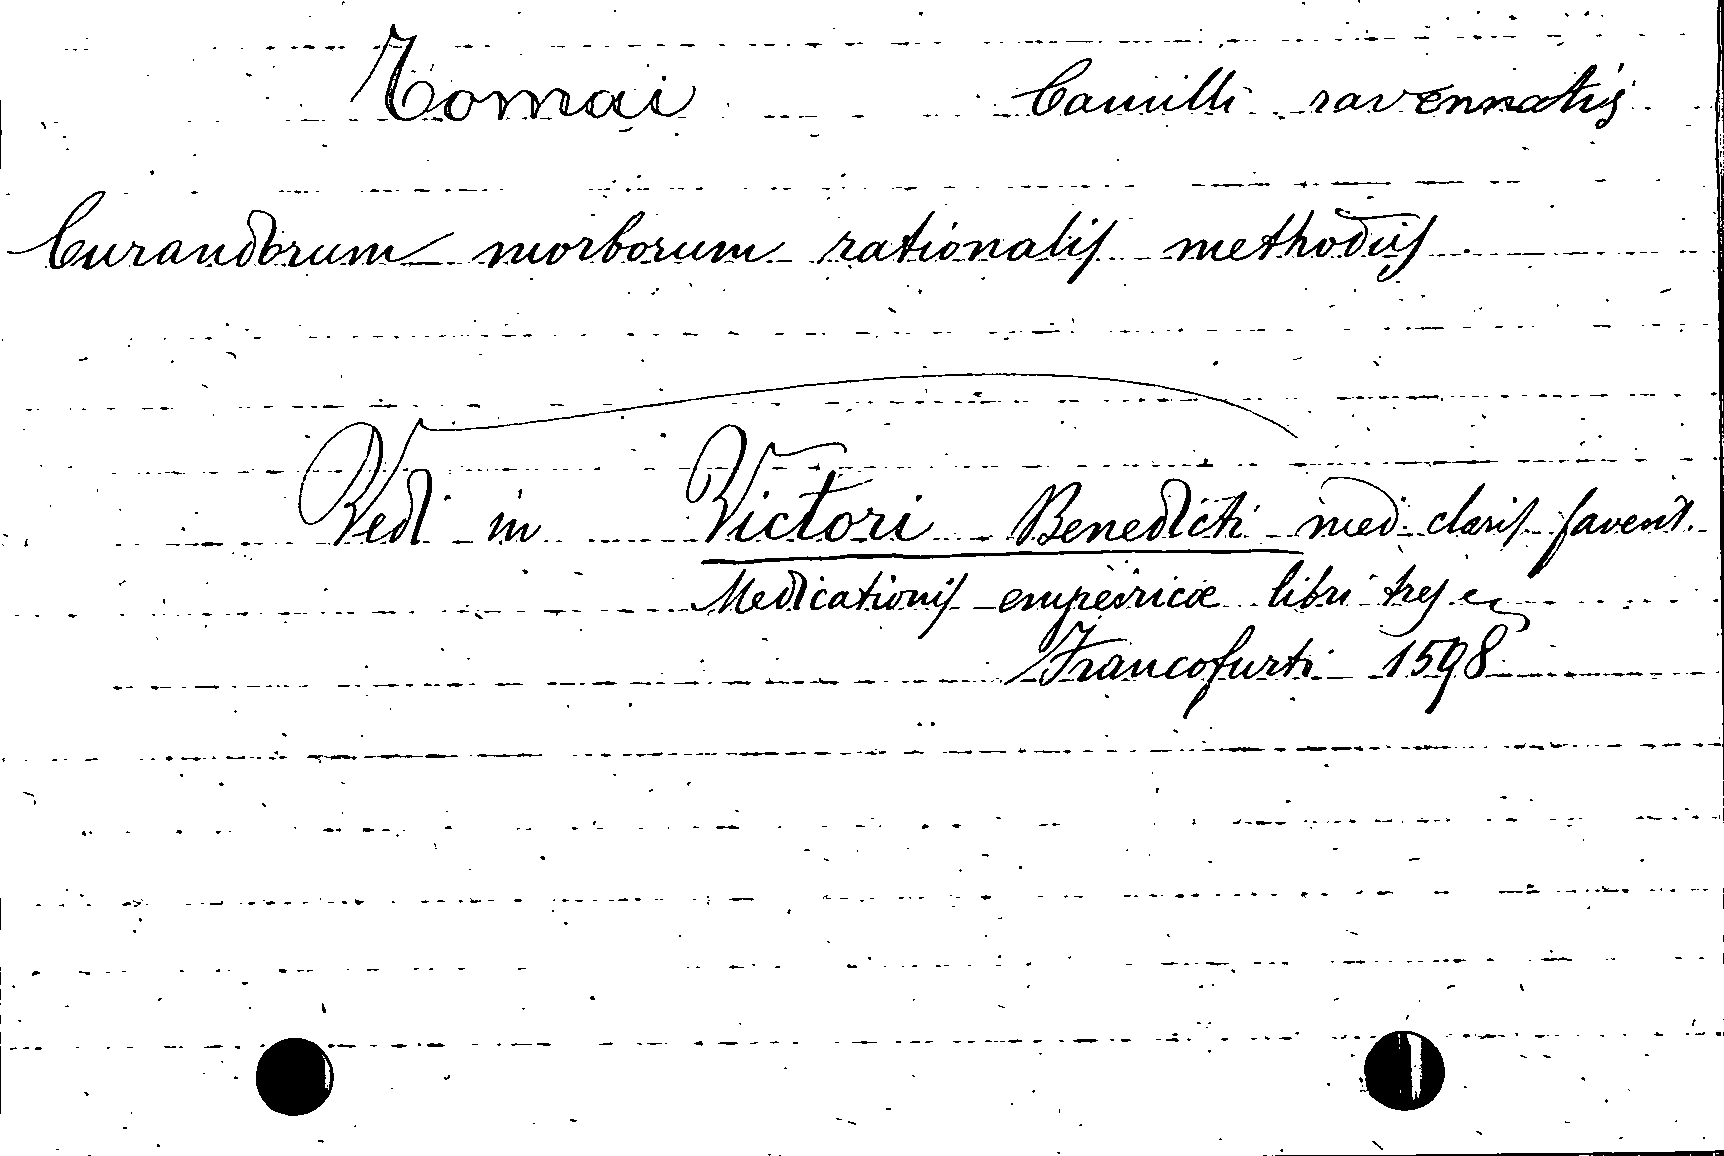 Tomai Camilli ravennatis
Curandorum morborum rationalis methodus
Vedi in Victori Benedicti med. claris favent.
Medicationis empeiricæ libri tres
Francofurti 1598